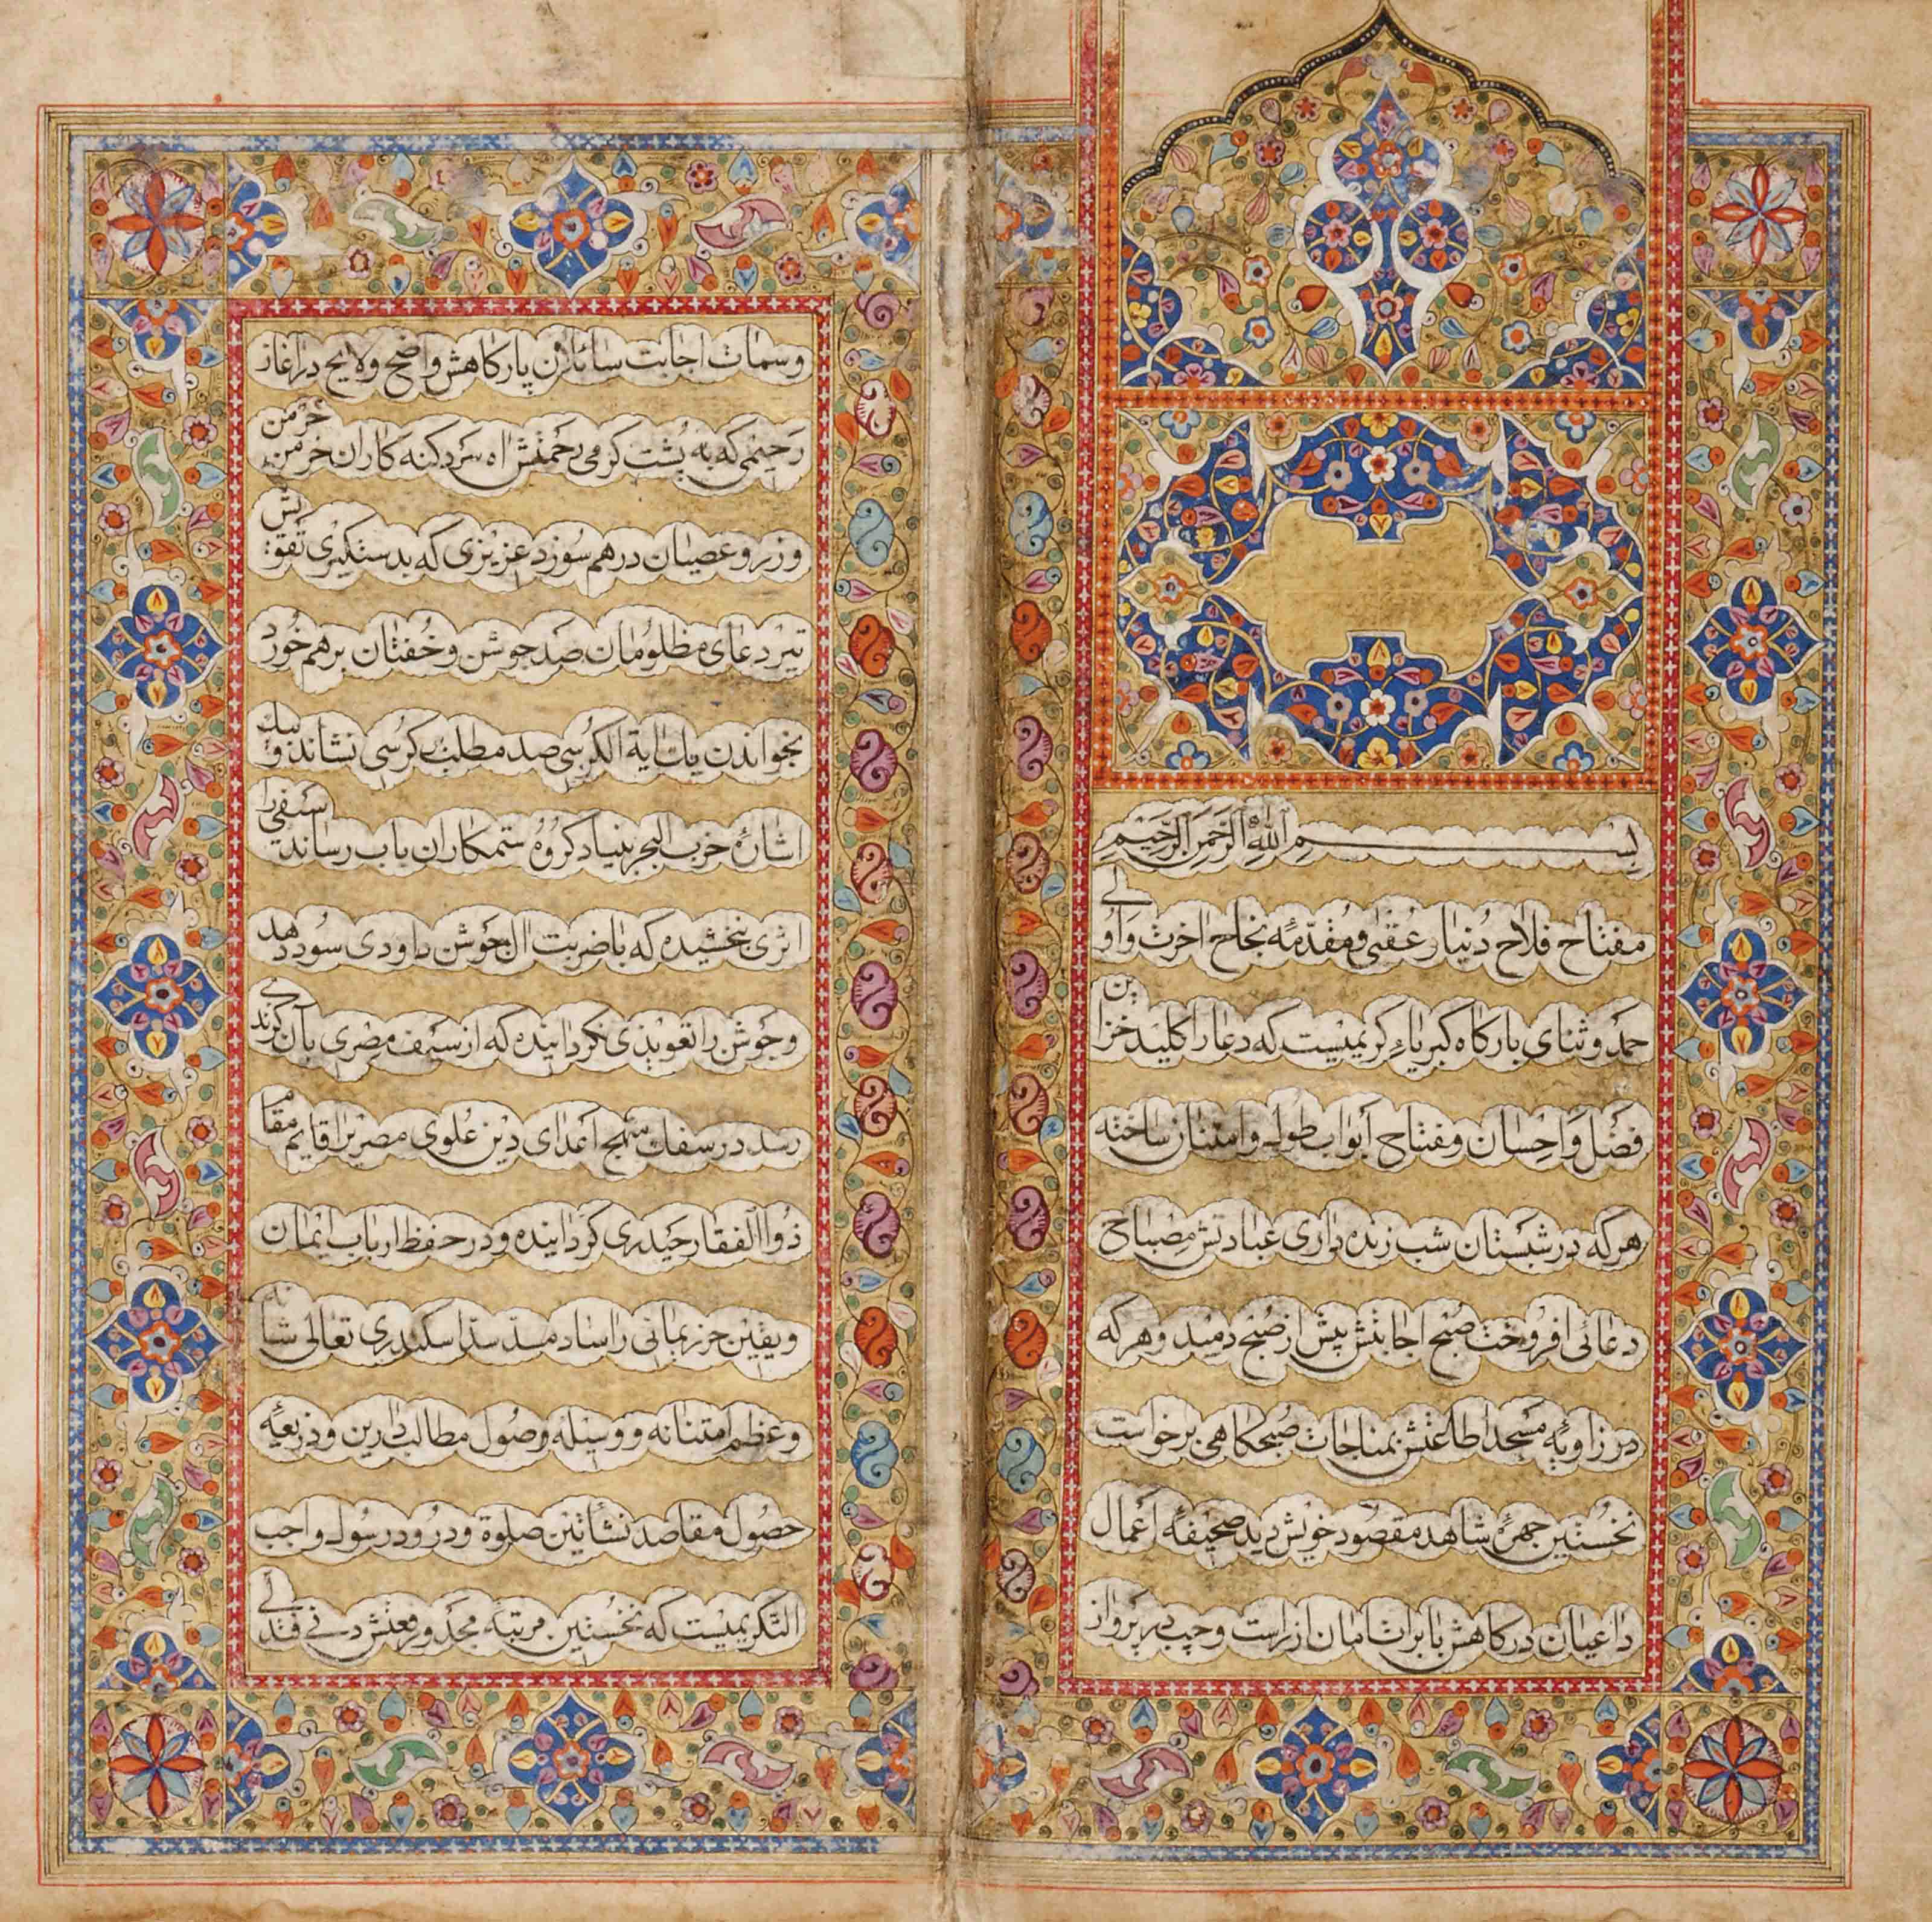 بسم الله الرحمن الرحیم
مفتاح فلاح دنیا و عقبی و مقدمه نجاح اخرت و اولی
حمد و ثنای بارکاه کبریاء کریمیست که دعا را کلید خزاین
فضل و احسان و مفتاح ابواب طول و امتنان ساخته
هر که در شبستان شب زنده داری عبادتش مصباح
دعائی افروخت صبح اجابتش پیش از صبح دمید و هر که
در زاویه مسجد اطاعتش بمناجات صبحکاهی برخواست
نخستین چهرهٔ شاهد مقصود خویش دید صحیفه اعمال
داعیان درکاهش با برات امان از راست و چپ در پرواز
و سمات اجابت سائلان بارکاهش واضح و لایح در اغاز
رحیمی که به پشت کرمی رحمتش اه سرد کنه کاران خرمن
وزر و عصیان درهم سوزد عزیزی که بدستکیری تقویتش
تیر دعای مظلومان صد جوشن و خفتان برهم خورد
بخواندن یک ایة الکرسی صد مطلب بکرسی نشاند و بیک
اشارهٔ حزب البحر بنیاد کروه ستمکاران باب رساند سیفی را
اثری بخشیده که با ضربت ان جوشن داودی سود دهد
و جوشن را تعویذی کردانیده که از سیف مصری بآن کزندی
رسد در سفک مهج اعدای دین علوی مصری را قایم مقام
ذوا الفقار حیدری کردانیده و در حفظ ارباب ایمان
و یقین حرز یمانی را سد سدید اسکندری تعالی شانه
و عظم امتنانه و وسیله وصول مطالب دارین و ذریعه
حصول مقاصد نشأتین صلوة و درود رسول واجب
التکریمیست که نخستین مرتبه مجد و رفعتش دنی فتدلی